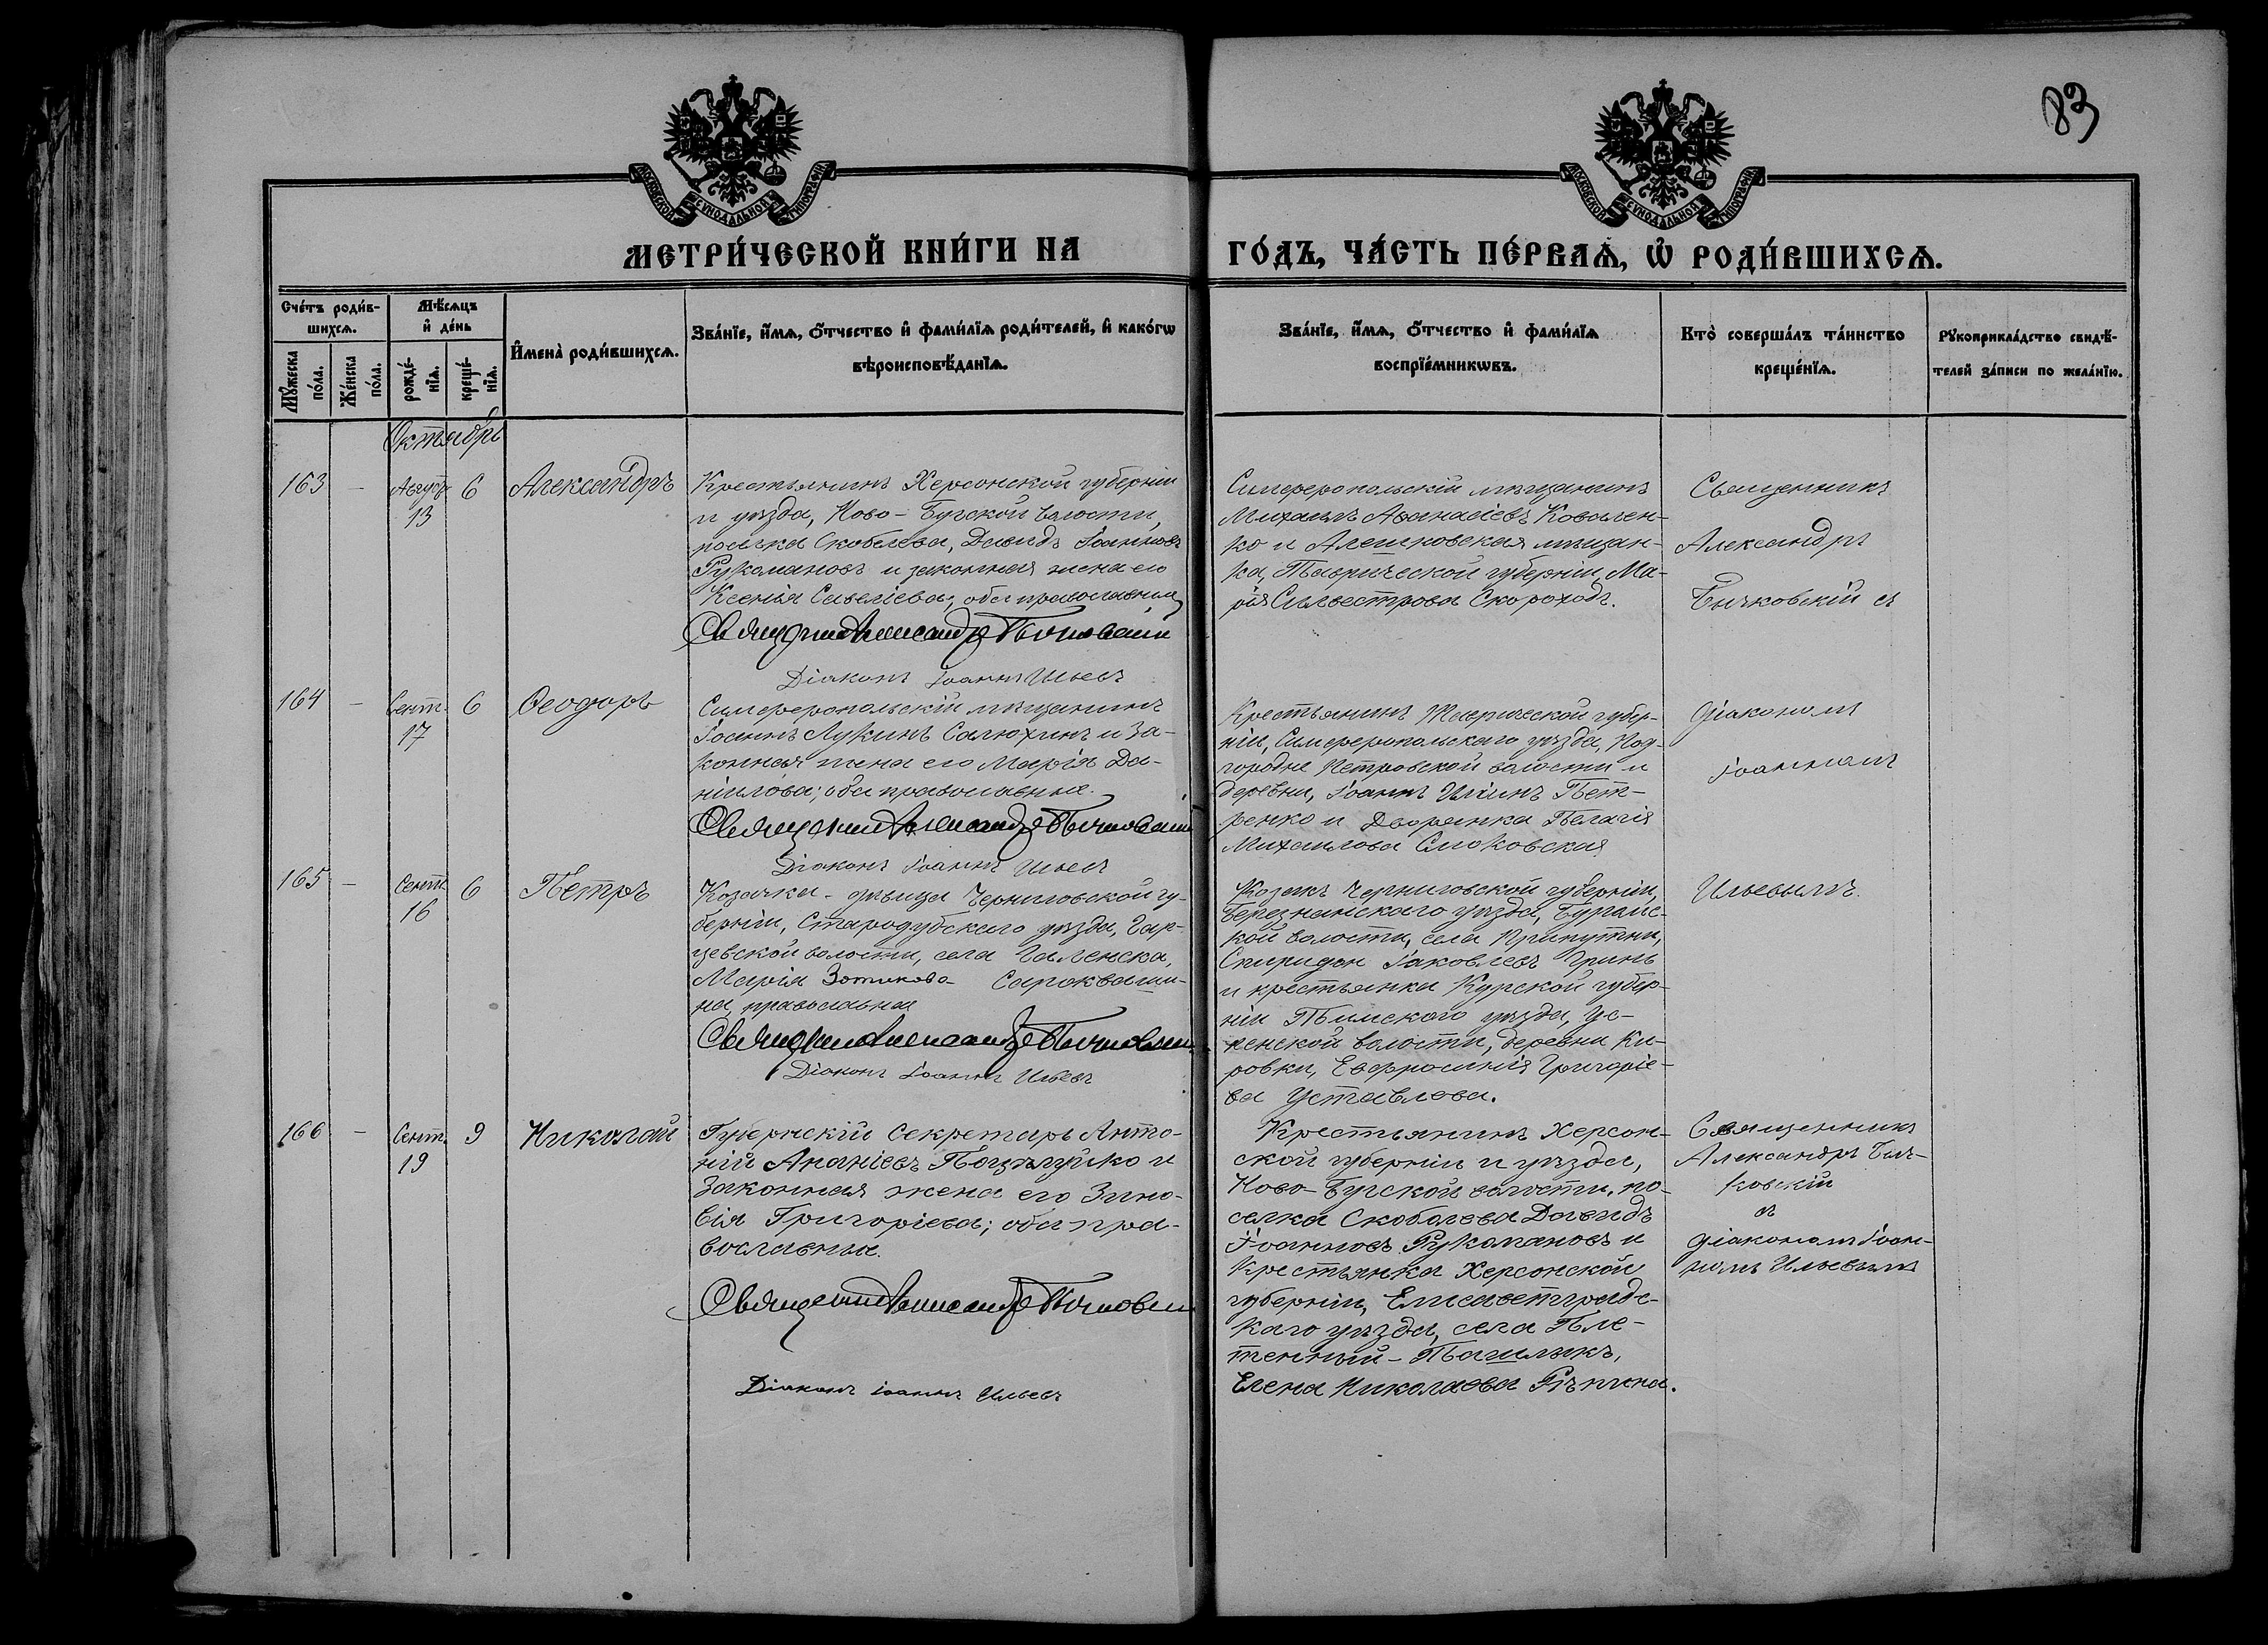 83
МОСКОВСКОЙ СѴНОДАЛЬНОЙ ТИПОГРАФІИ
МОСКОВСКОЙ СѴНОДАЛЬНОЙ ТИПОГРАФІИ
МЕТРИ́ЧЕСКОЙ КНИ́ГИ НА
ГО́ДЪ, ЧА́СТЬ ПЕ́РВАѦ, Ѡ҆ РОДИ́ВШИХСѦ.
Сче́тъ роди́в-
шихсѧ.
Мꙋ́жеска
по́ла.
Же́нска
по́ла.
Мѣ́сѧцъ
и҆ де́нь
рожде́-
нїѧ.
креще́-
нїѧ.
И҆мена̀ роди́вшихсѧ.
Зва́нїе, и҆́мѧ, ѻ҆́тчество и҆ фами́лїѧ роди́телей, и҆ како́гѡ
вѣроисповѣ́данїѧ.
Зва́нїе, и҆́мѧ, ѻ҆́тчество и҆ фами́лїѧ
воспрїе́мникѡвъ.
Кто̀ соверша́лъ та́инство
креще́нїѧ.
Рꙋкоприкла́дство свидѣ́-
телей за́писи по жела́нїю.
Октябрь
163 - Август. 13 6 Александръ
Крестьянинъ Херсонской губерніи
и уѣзда, Ново-Бугской волости,
поселка Скобелева, Давидъ Іоанновъ
Рукомановъ и законная жена его
Ксенія Савеліева, оба православные
Священникъ Александръ Бычковскій
Діаконъ Іоаннъ Ильевъ
Симферопольскій мѣщанинъ
Михаилъ Аѳанасіевъ Ковален-
ко и Алешковская мѣщан-
ка, Таврической губерніи, Ма-
рія Сильвестрова Скороходъ.
Священникъ
Александръ
Бычковскій съ
164 - Сент. 17 6 Ѳеодоръ
Симферопольскій мѣщанинъ
Іоаннъ Лукинъ Салюхинъ и за-
конная жена его Марія Да-
ніилова; оба православные.
Священникъ Александръ Бычковскій
Діаконъ Іоаннъ Ильевъ
Крестьянинъ Таврической губер-
ніи, Симферопольскаго уѣзда, Под-
городне Петровской волости и
деревни, Іоаннъ Ильинъ Пет-
ренко и Дворянка Пелагія
Михаилова
діакономъ
Іоанномъ
165 - Сент. 16 6 Петръ
Козачка-дѣвица Черниговской гу-
берніи, Стародубскаго уѣзда,
волости, села
Марія Зотикова Сапокваши-
на, православная
Священникъ Александръ Бычковскій
Діаконъ Іоаннъ Ильевъ
Козакъ Черниговской губерніи,
уѣзда,
кой волости, села Припутни,
Спиридон Іаковлевъ Гринь
и крестьянка Курской губер-
ніи Тимскаго уѣзда, Ус-
пенской волости, деревни Ки-
ровки, Евфросинія Григоріе-
ва Уставлова.
Ильевымъ.
166 - Сент. 19 9 Николай
Губернскій Секретарь Анто-
ній Ананіевъ Поцѣлуйко и
законная жена его Зино-
вія Григоріева; оба пра-
вославные.
Священникъ Александръ Бычковскій
Діаконъ Іоаннъ Ильевъ
Крестьянинъ Херсон-
ской губерніи и уѣзда,
Ново-Бугской волости, по-
селка Скоболева Давидъ
Іоанновъ Рукомановъ и
крестьянка Херсонской
губерніи, Елисаветградс-
каго уѣзда, села Пле-
тенный-Ташлыкъ,
Елена Николаева Рѣпина.
Священникъ
Александръ Быч-
ковскій
съ
діакономъ Іоан-
номъ Ильевымъ